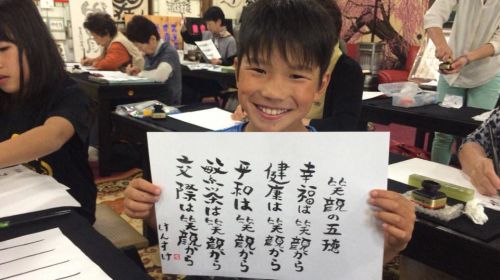 笑顔の五徳
幸福は笑顔から
健康は笑顔から
平和は笑顔から
繁栄は笑顔から
交際は笑顔から
げんすけ